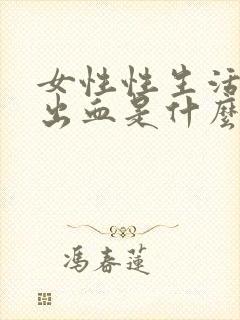 女性性生活
出血是什麼
馮春蓮